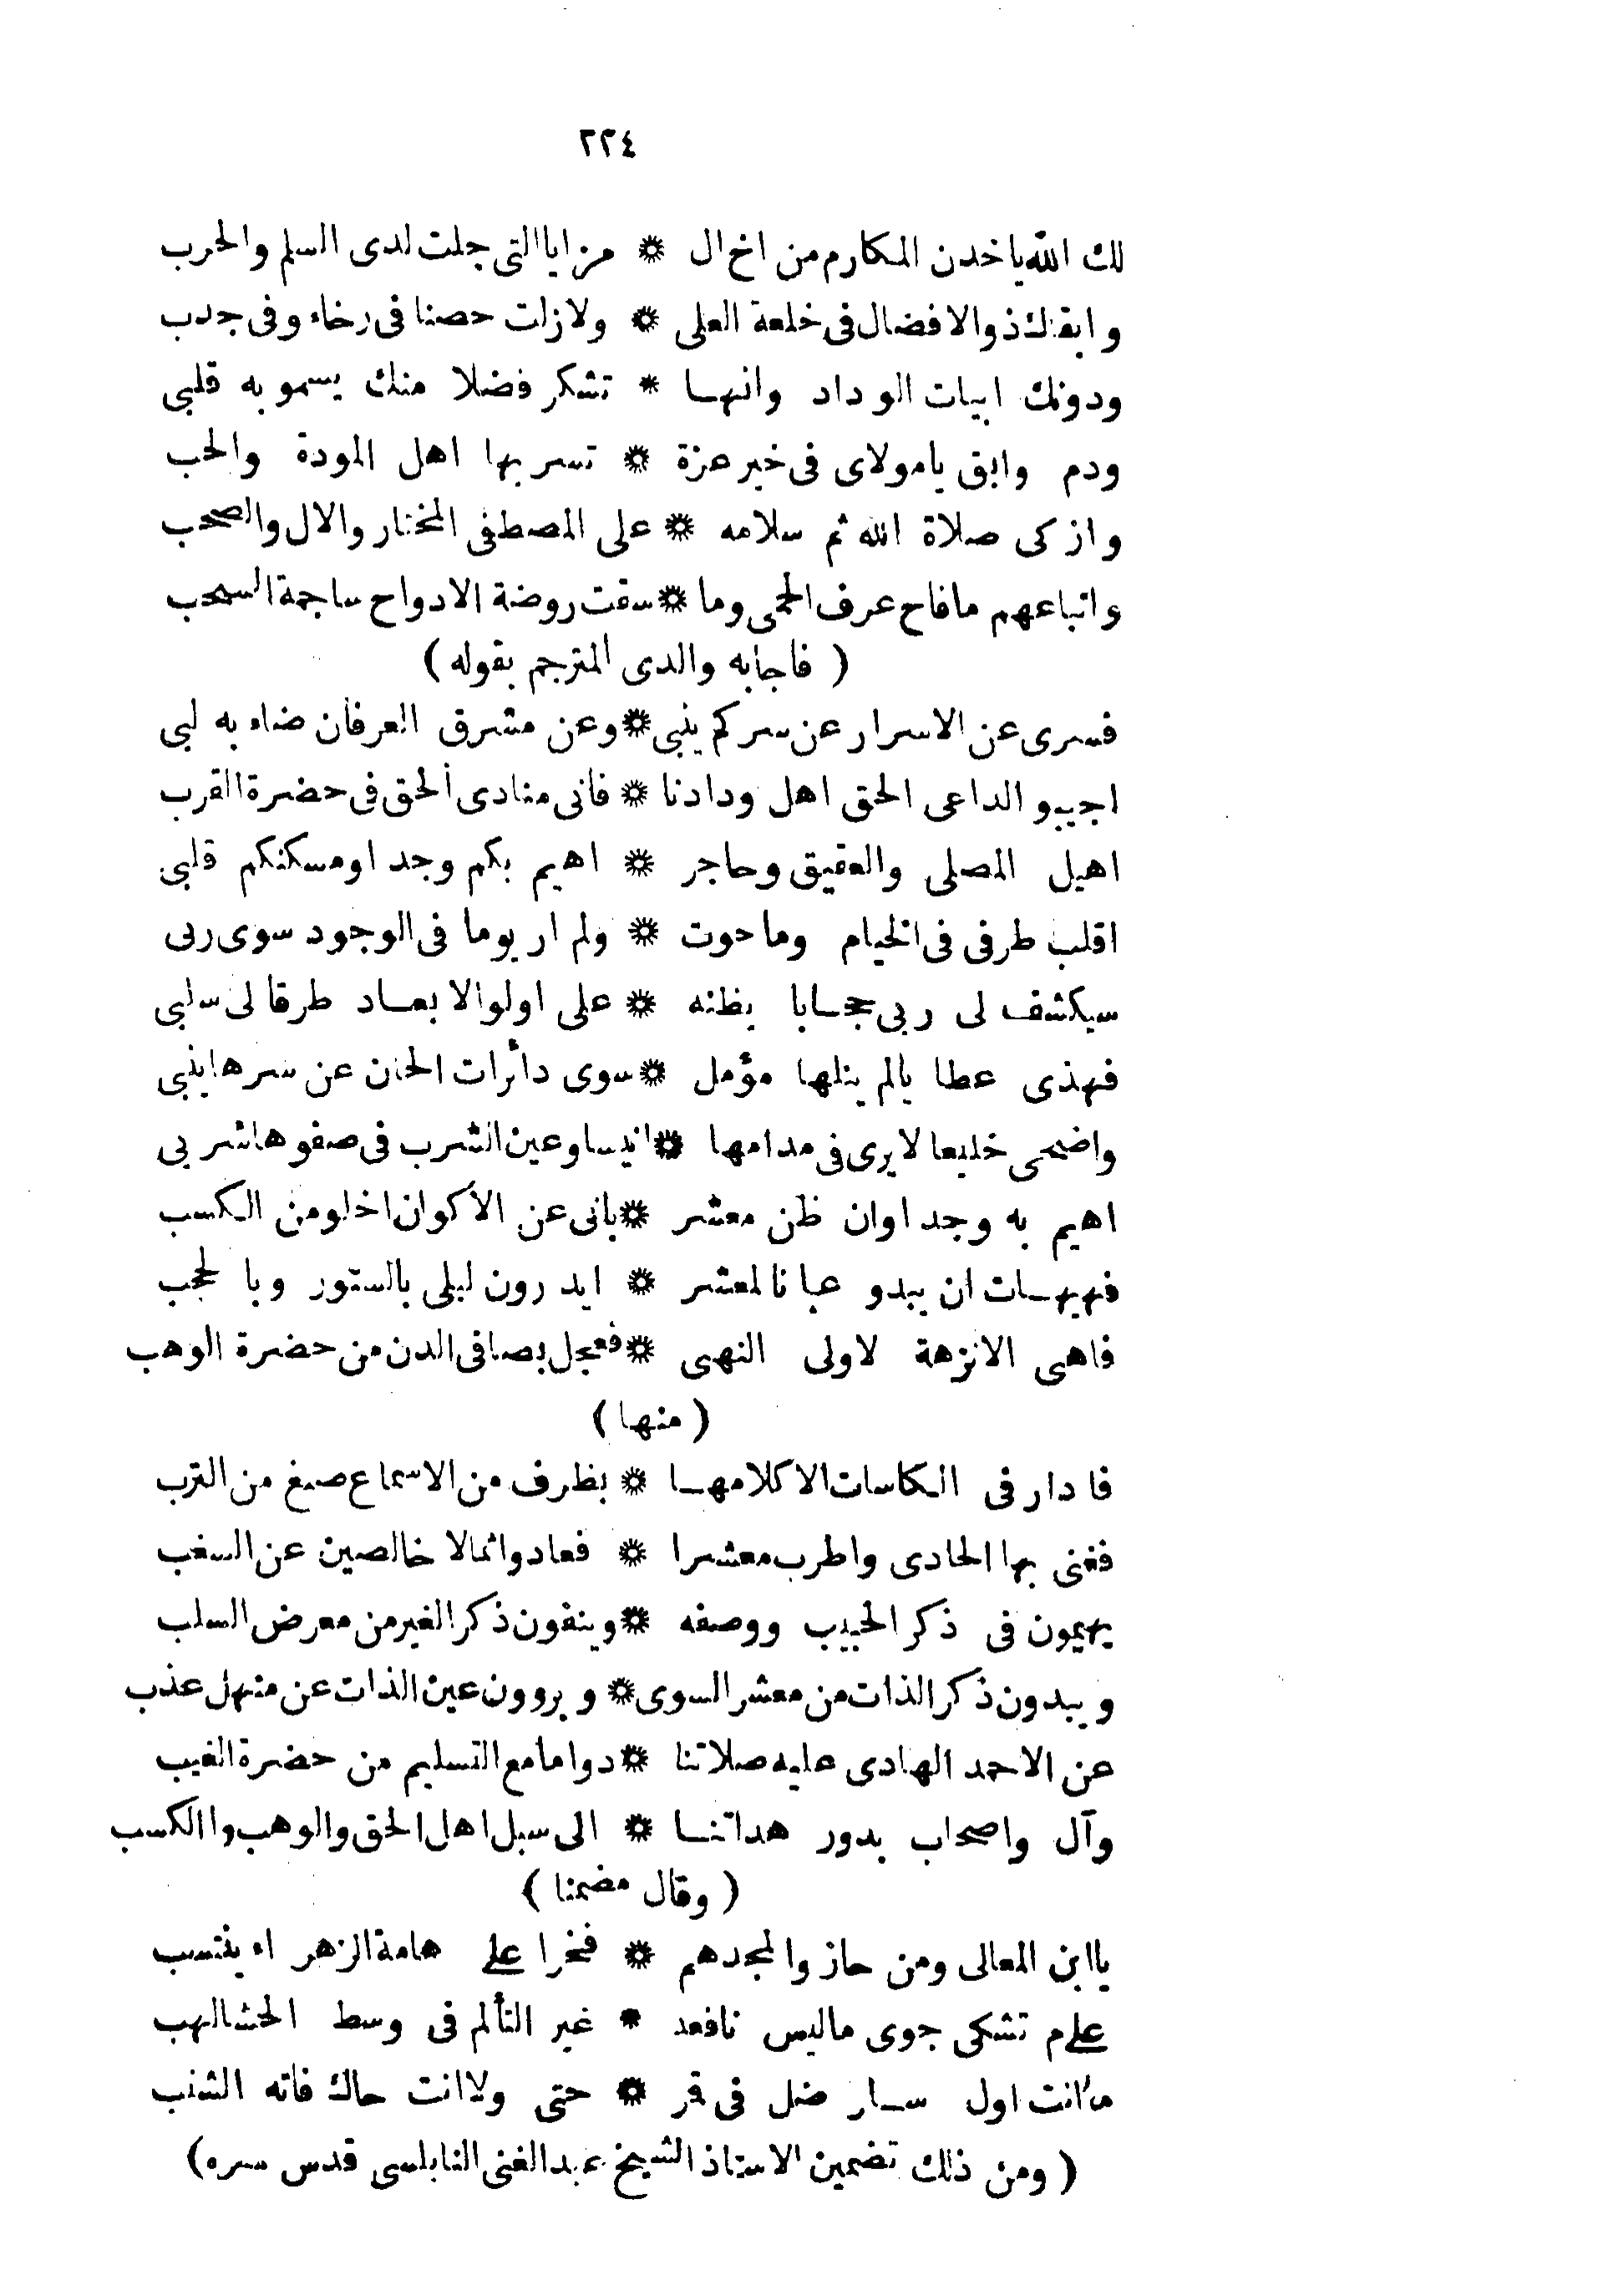 ٢٢٤
لك الله يا خدن المكارم من اخ ال * مزايا التى جلت لدى السلم والحرب
وابقاك ذو الافضال فى خلعة العلى * ولا زلت حصنا فى رخاء وفى جدب
ودونك ابيات الوداد وانها * تشكر فضلا منك يسمو به قلبى
ودم وابق يا مولاى فى خير عزة * تسر بها اهل المودة والحب
وازكى صلاة الله ثم سلامه * على المصطفى المختار والال والصحب
واتباعهم ما فاح عرف الحمى وما * سقت روضة الادواح ساجمة السحب
( فاجابه والدى المترجم بقوله )
فسرى عن الاسرار عن سركم ينبى * وعن مشرق العرفان ضاء به لبى
اجيبو الداعى الحق اهل ودادنا * فانى منادى الحق فى حضرة القرب
اهيل المصلى والعقيق وحاجر * اهيم بكم وجدا ومسكنكم قلبى
اقلب طرفى فى الخيام وما حوت * ولم ار يوما فى الوجود سوى ربى
سيكشف لى ربى حجابا بظنه * على اولو الابعاد طرقا لى سلبى
فهذى عطايا لم ينلها مؤمل * سوى دائرات الحان عن سرها ينبى
واضحى خليعا لا يرى فى مدامها * انيسا وعين الشرب فى صفوها شربى
اهيم به وجدا وان ظن معشر * بانى عن الاكوان اخلو من الكسب
فهيهات ان يبدو عيانا لمعشر * ايدرون ليلى بالستور وبالحجب
فاهى الانزهة لاولى النهى * فعجل بصافى الدن من حضرة الوهب
( منها )
فا دار فى الكاسات الا كلامها * بظرف من الاسماع صيغ من الترب
فغنى بها الحادى واطرب معشرا * فعادوا ثمالا خالصين عن السغب
يهيمون فى ذكر الحبيب ووصفه * وينفون ذكر الغير من معرض السلب
ويبدون ذكر الذات من معشر السوى * ويروون عين الذات عن منهل عذب
عن الاحمد الهادى عليه صلاتنا * دواما مع التسليم من حضرة الغيب
وآل واصحاب بدور هداتنا * الى سبل اهل الحق والوهب واالكسب
( وقال مضمنا )
يا ابن المعالى ومن حازوا لمجدهم * فخرا على هامة الزهراء ينتسب
علام تشكى جوى ما ليس نافعه * غير التألم فى وسط الحشا لهب
ما انت اول سار ضل فى قمر * حتى ولا انت حاك فاته الشنب
( ومن ذلك تضمين الاستاذ الشيخ عبد الغنى النابلسى قدس سره )